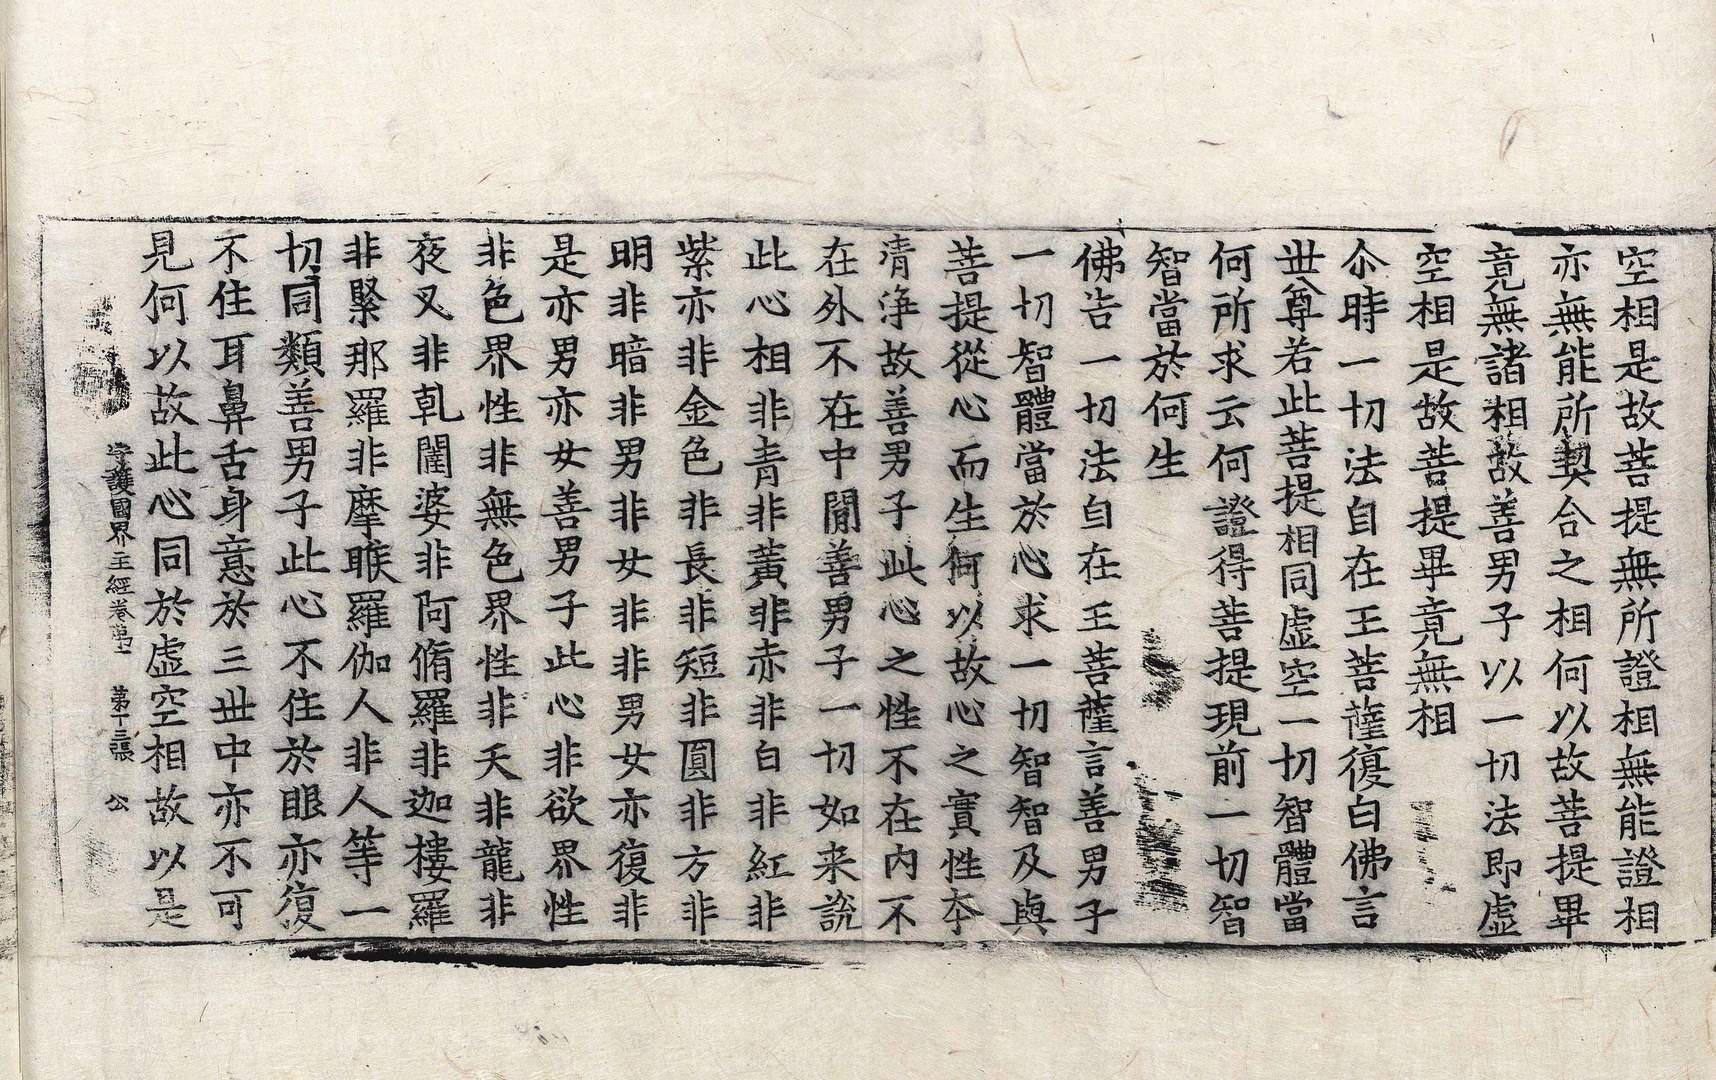 空相是故菩提無所證相無能證相
亦無能所契合之相何以故菩提畢
竟無諸相故善男子以一切法即虛
空相是故菩提畢竟無相
尒時一切法自在王菩薩復白佛言
世尊若此菩提相同虛空一切智體當
何所求云何證得菩提現前一切智
智當於何生
佛告一切法自在王菩薩言善男子
一切智體當於心求一切智智及與
菩提從心而生何以故心之實性夲
清淨故善男子此心之性不在內不
在外不在中閒善男子一切如来說
此心相非青非黃非赤非白非紅非
紫亦非金色非長非短非圓非方非
明非暗非男非女非非男女亦復非
是亦男亦女善男子此心非欲界性
非色界性非無色界性非天非龍非
夜叉非乹闥婆非阿脩羅非迦樓羅
非緊那羅非摩睺羅伽人非人等一
切同類善男子此心不住於眼亦復
不住耳鼻舌身意於三世中亦不可
見何以故此心同於虛空相故以是
守護國界主經卷第一 第十三張 公